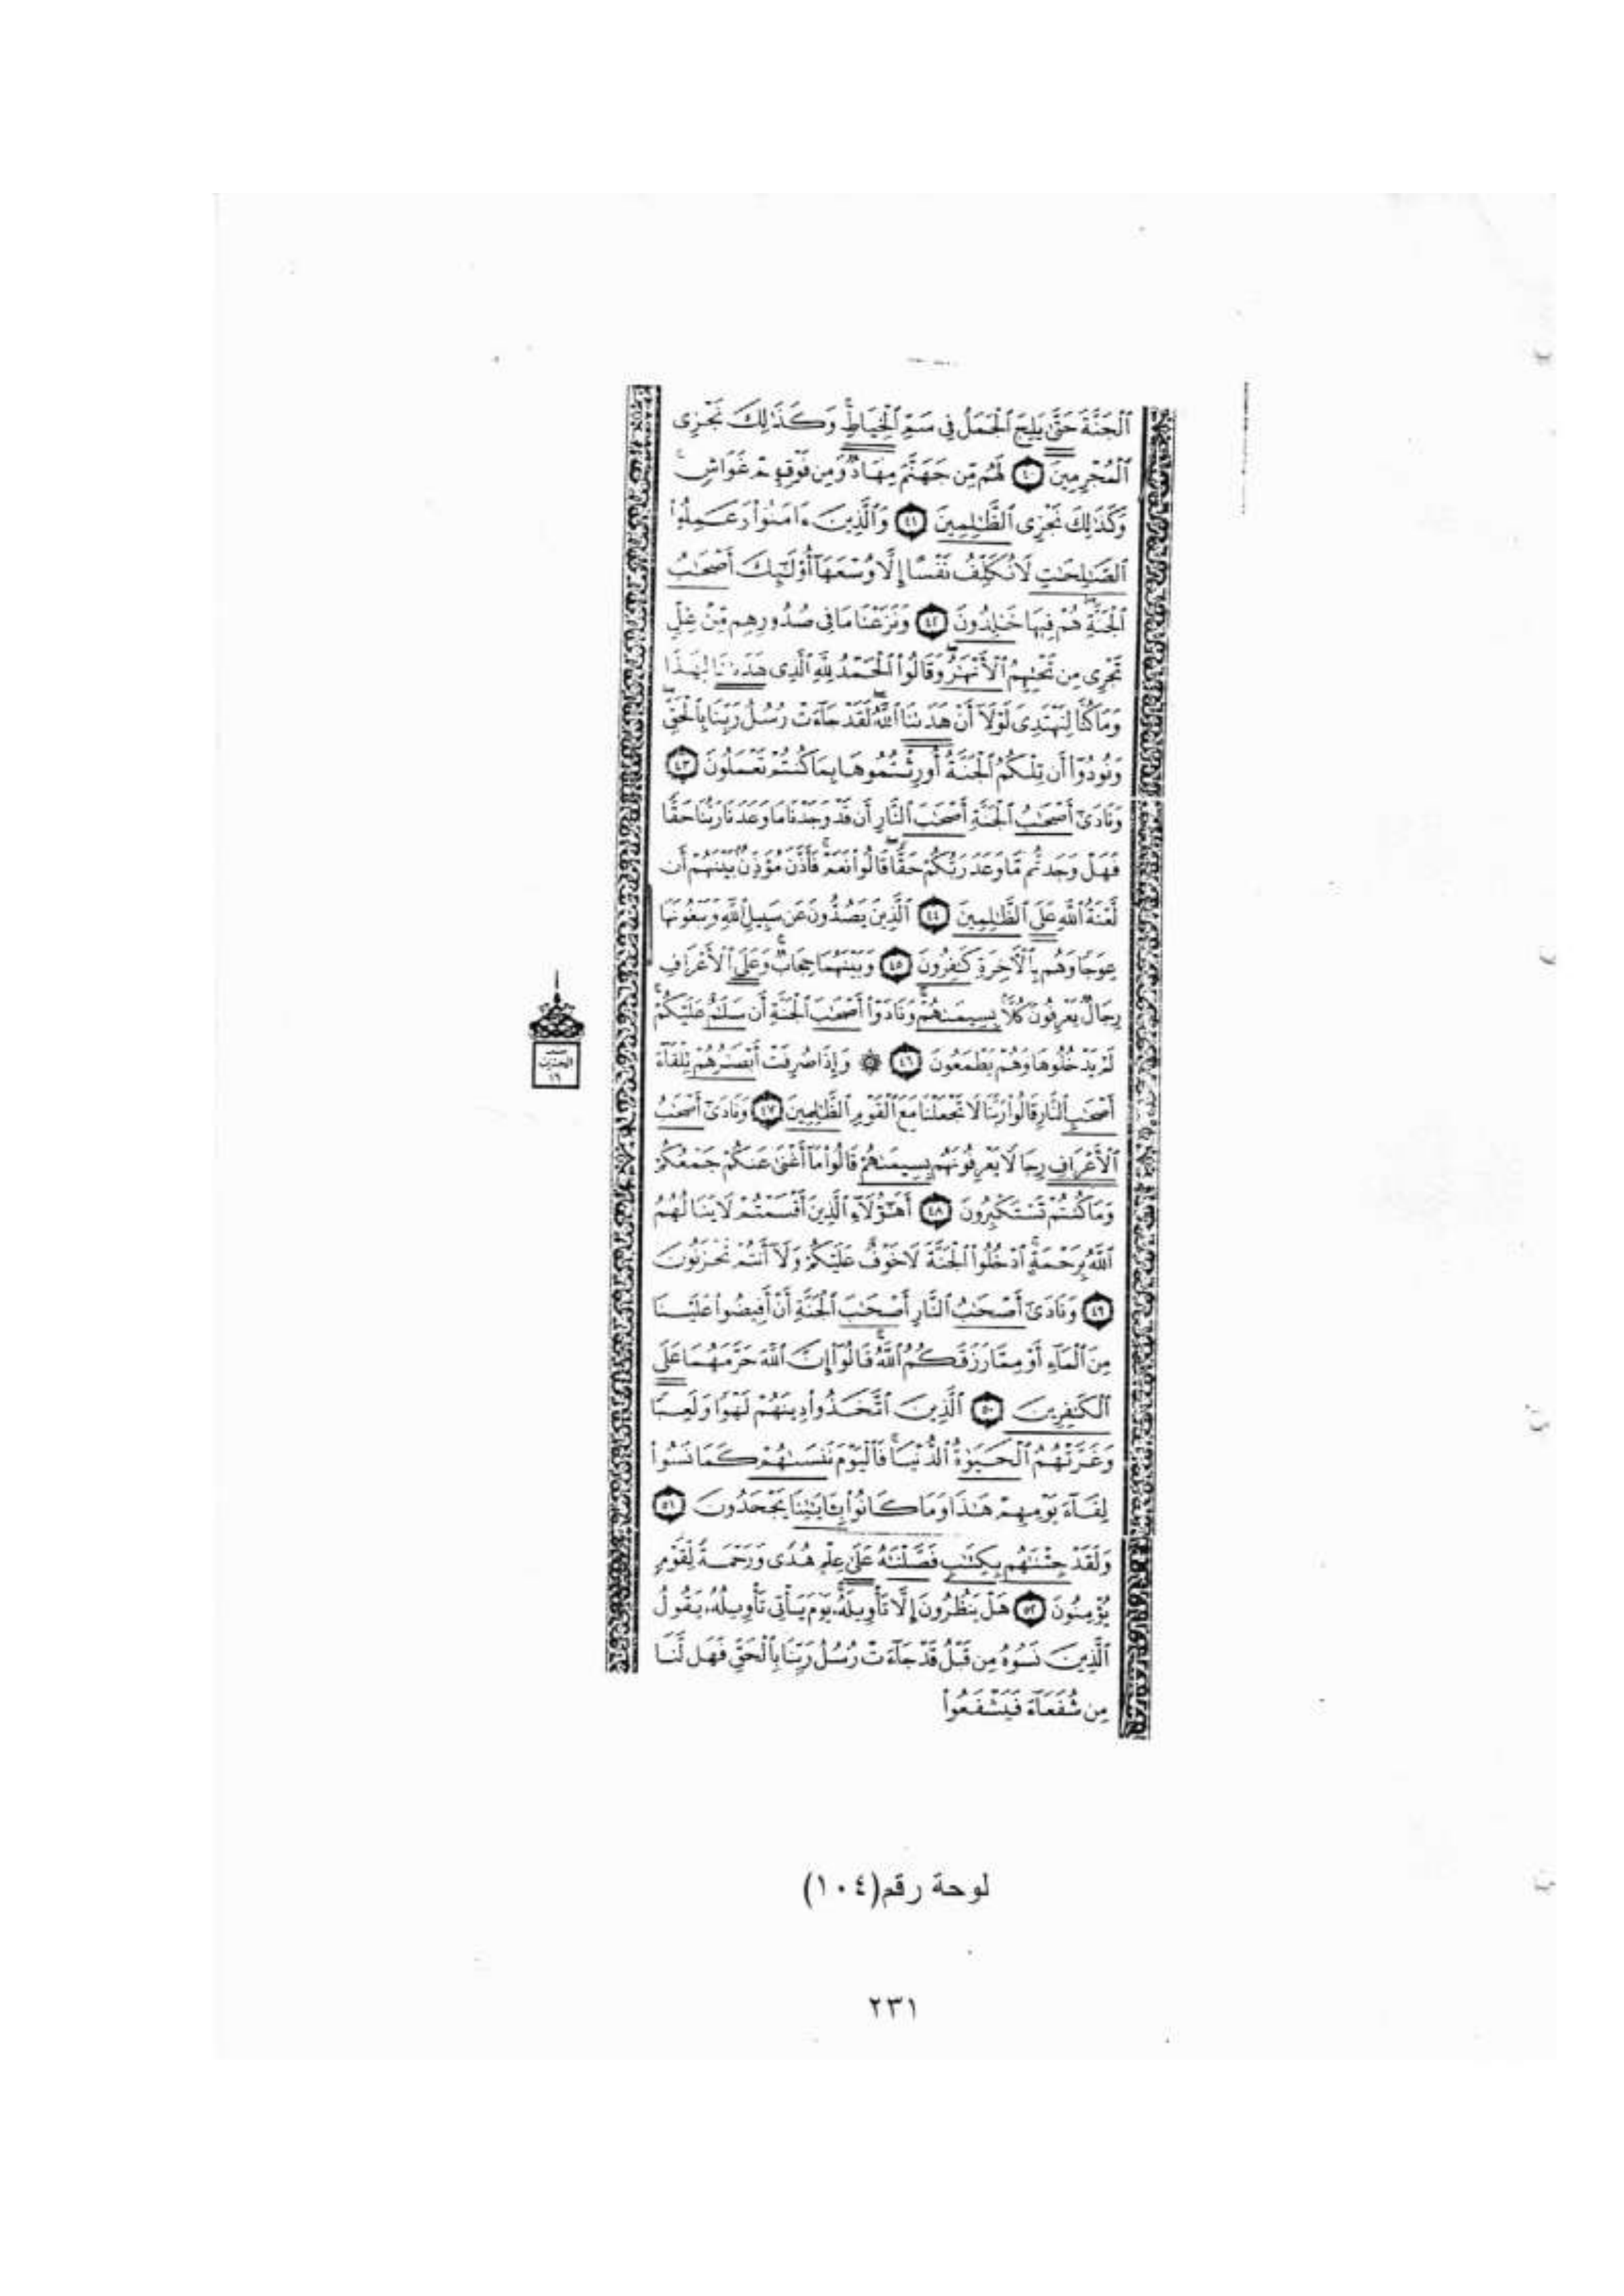 ٱلْجَنَّةَ حَتَّىٰ يَلِجَ ٱلْجَمَلُ فِى سَمِّ ٱلْخِيَاطِ ۚ وَكَذَٰلِكَ نَجْزِى
ٱلْمُجْرِمِينَ ٤٠ لَهُم مِّن جَهَنَّمَ مِهَادٌ وَمِن فَوْقِهِمْ غَوَاشٍ ۚ
وَكَذَٰلِكَ نَجْزِى ٱلظَّٰلِمِينَ ٤١ وَٱلَّذِينَ ءَامَنُوا۟ وَعَمِلُوا۟
ٱلصَّٰلِحَٰتِ لَا نُكَلِّفُ نَفْسًا إِلَّا وُسْعَهَآ أُو۟لَٰٓئِكَ أَصْحَٰبُ
ٱلْجَنَّةِ ۖ هُمْ فِيهَا خَٰلِدُونَ ٤٢ وَنَزَعْنَا مَا فِى صُدُورِهِم مِّنْ غِلٍّ
تَجْرِى مِن تَحْتِهِمُ ٱلْأَنْهَٰرُ ۖ وَقَالُوا۟ ٱلْحَمْدُ لِلَّهِ ٱلَّذِى هَدَىٰنَا لِهَٰذَا
وَمَا كُنَّا لِنَهْتَدِىَ لَوْلَآ أَنْ هَدَىٰنَا ٱللَّهُ ۖ لَقَدْ جَآءَتْ رُسُلُ رَبِّنَا بِٱلْحَقِّ ۖ
وَنُودُوٓا۟ أَن تِلْكُمُ ٱلْجَنَّةُ أُورِثْتُمُوهَا بِمَا كُنتُمْ تَعْمَلُونَ ٤٣
وَنَادَىٰٓ أَصْحَٰبُ ٱلْجَنَّةِ أَصْحَٰبَ ٱلنَّارِ أَن قَدْ وَجَدْنَا مَا وَعَدَنَا رَبُّنَا حَقًّا
فَهَلْ وَجَدتُّم مَّا وَعَدَ رَبُّكُمْ حَقًّا ۖ قَالُوا۟ نَعَمْ ۚ فَأَذَّنَ مُؤَذِّنٌۢ بَيْنَهُمْ أَن
لَّعْنَةُ ٱللَّهِ عَلَى ٱلظَّٰلِمِينَ ٤٤ ٱلَّذِينَ يَصُدُّونَ عَن سَبِيلِ ٱللَّهِ وَيَبْغُونَهَا
عِوَجًا وَهُم بِٱلْءَاخِرَةِ كَٰفِرُونَ ٤٥ وَبَيْنَهُمَا حِجَابٌ ۚ وَعَلَى ٱلْأَعْرَافِ
رِجَالٌ يَعْرِفُونَ كُلًّۢا بِسِيمَىٰهُمْ ۚ وَنَادَوْا۟ أَصْحَٰبَ ٱلْجَنَّةِ أَن سَلَٰمٌ عَلَيْكُمْ ۚ
لَمْ يَدْخُلُوهَا وَهُمْ يَطْمَعُونَ ٤٦ ۞ وَإِذَا صُرِفَتْ أَبْصَٰرُهُمْ تِلْقَآءَ
أَصْحَٰبِ ٱلنَّارِ قَالُوا۟ رَبَّنَا لَا تَجْعَلْنَا مَعَ ٱلْقَوْمِ ٱلظَّٰلِمِينَ ٤٧ وَنَادَىٰٓ أَصْحَٰبُ
ٱلْأَعْرَافِ رِجَالًا يَعْرِفُونَهُم بِسِيمَىٰهُمْ قَالُوا۟ مَآ أَغْنَىٰ عَنكُمْ جَمْعُكُمْ
وَمَا كُنتُمْ تَسْتَكْبِرُونَ ٤٨ أَهَٰٓؤُلَآءِ ٱلَّذِينَ أَقْسَمْتُمْ لَا يَنَالُهُمُ
ٱللَّهُ بِرَحْمَةٍ ۚ ٱدْخُلُوا۟ ٱلْجَنَّةَ لَا خَوْفٌ عَلَيْكُمْ وَلَآ أَنتُمْ تَحْزَنُونَ
٤٩ وَنَادَىٰٓ أَصْحَٰبُ ٱلنَّارِ أَصْحَٰبَ ٱلْجَنَّةِ أَنْ أَفِيضُوا۟ عَلَيْنَا
مِنَ ٱلْمَآءِ أَوْ مِمَّا رَزَقَكُمُ ٱللَّهُ ۚ قَالُوٓا۟ إِنَّ ٱللَّهَ حَرَّمَهُمَا عَلَى
ٱلْكَٰفِرِينَ ٥٠ ٱلَّذِينَ ٱتَّخَذُوا۟ دِينَهُمْ لَهْوًا وَلَعِبًا
وَغَرَّتْهُمُ ٱلْحَيَوٰةُ ٱلدُّنْيَا ۚ فَٱلْيَوْمَ نَنسَىٰهُمْ كَمَا نَسُوا۟
لِقَآءَ يَوْمِهِمْ هَٰذَا وَمَا كَانُوا۟ بِـَٔايَٰتِنَا يَجْحَدُونَ ٥١
وَلَقَدْ جِئْنَٰهُم بِكِتَٰبٍ فَصَّلْنَٰهُ عَلَىٰ عِلْمٍ هُدًى وَرَحْمَةً لِّقَوْمٍ
يُؤْمِنُونَ ٥٢ هَلْ يَنظُرُونَ إِلَّا تَأْوِيلَهُۥ ۚ يَوْمَ يَأْتِى تَأْوِيلُهُۥ يَقُولُ
ٱلَّذِينَ نَسُوهُ مِن قَبْلُ قَدْ جَآءَتْ رُسُلُ رَبِّنَا بِٱلْحَقِّ فَهَل لَّنَا
مِن شُفَعَآءَ فَيَشْفَعُوا۟
الحزب
١٦
لوحة رقم(١٠٤)
٢٣١